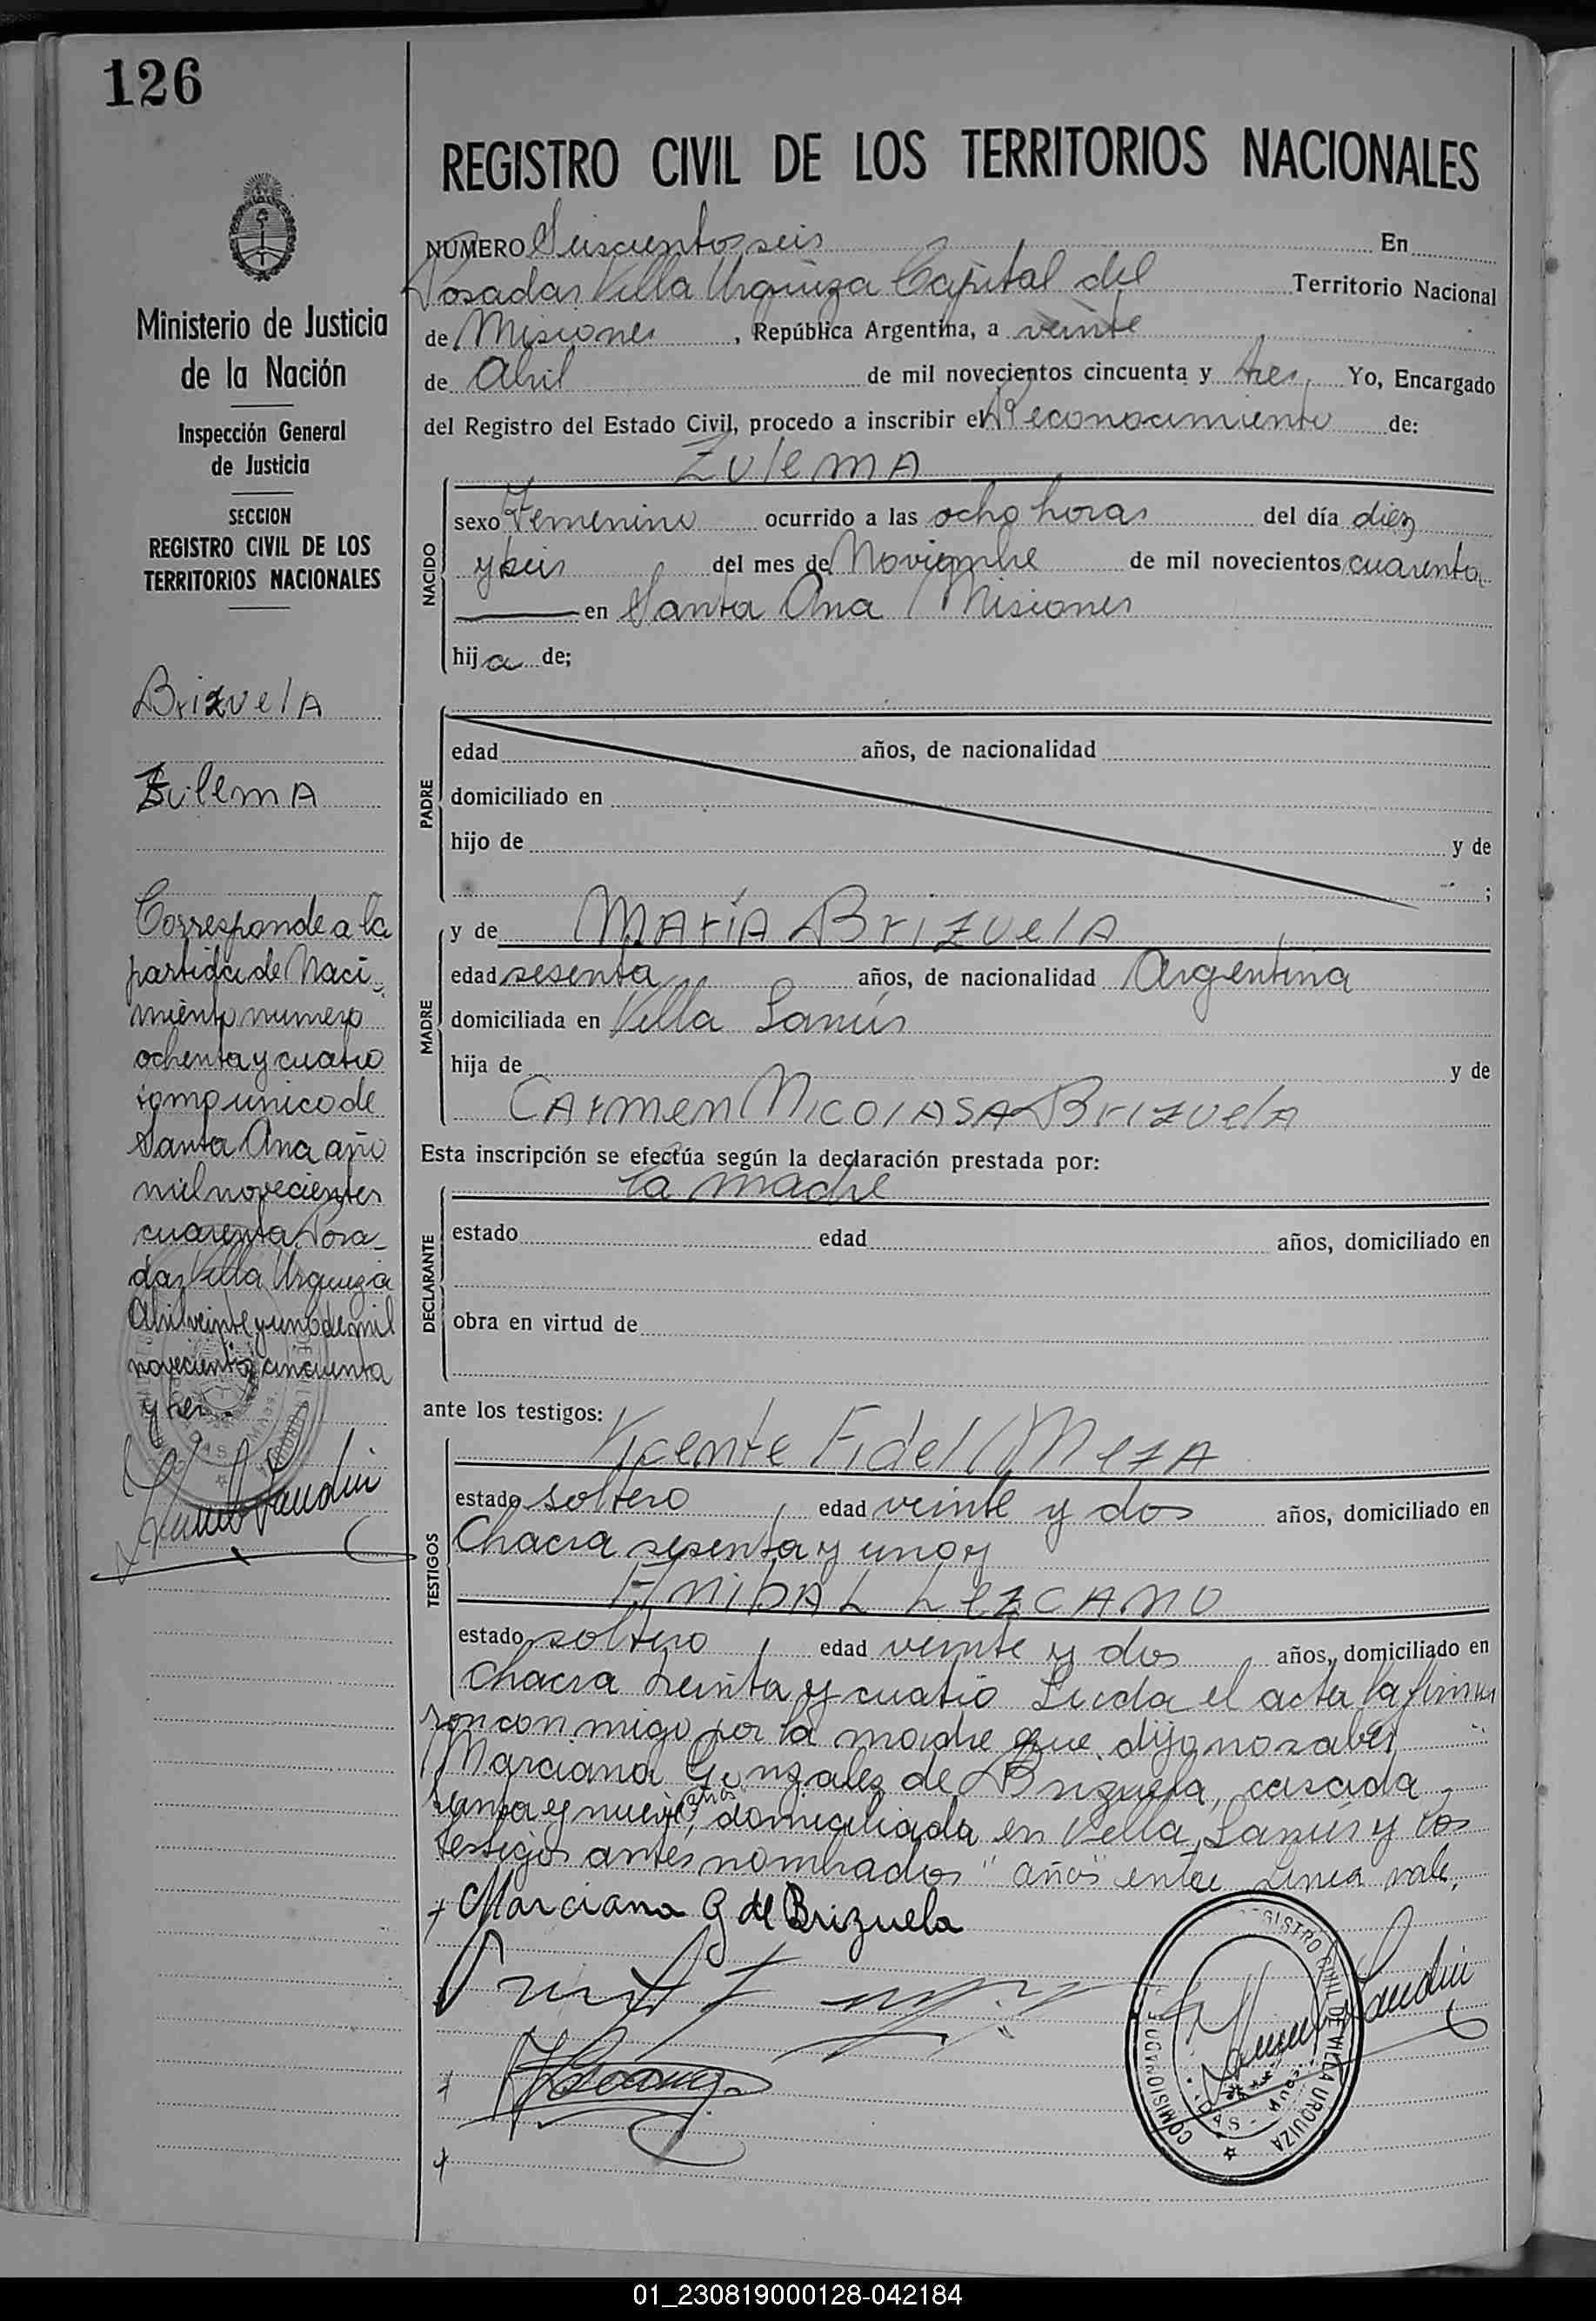 126
Ministerio de Justicia
de la Nación
Inspección General
de Justicia
SECCION
REGISTRO CIVIL DE LOS
TERRITORIOS NACIONALES
Brizuela
Zulema
Corresponde a la
partida de Naci-
miento numero
ochenta y cuatro
tomo unico de
Santa Ana año
mil novecientos
cuarenta. Posa-
das Villa Urquiza
Abril veinte y uno de mil
novecientos cincuenta
y tres.
REGISTRO CIVIL DE LOS TERRITORIOS NACIONALES
NUMERO Seiscientos seis En
Posadas Villa Urquiza Capital del Territorio Nacional
de Misiones, República Argentina, a veinte
de Abril de mil novecientos cincuenta y tres, Yo, Encargado
del Registro del Estado Civil, procedo a inscribir el Reconocimiento de:
Zulema
NACIDO
sexo Femenino ocurrido a las ocho horas del día diez
y seis del mes de Noviembre de mil novecientos cuarenta
en Santa Ana Misiones
hija de;
PADRE
edad años, de nacionalidad
domiciliado en
hijo de y de
;
MADRE
y de María Brizuela
edad sesenta años, de nacionalidad Argentina
domiciliada en Villa Lanús
hija de y de
Carmen Nicolasa Brizuela
Esta inscripción se efectúa según la declaración prestada por:
la madre
DECLARANTE
estado edad años, domiciliado en
obra en virtud de
ante los testigos:
TESTIGOS
Vicente Fidel Meza
estado soltero, edad veinte y dos años, domiciliado en
Chacra sesenta y uno y
Anibal Lezcano
estado soltero, edad veinte y dos años, domiciliado en
Chacra treinta y cuatro Leida el acta la firma
ron con migo por la madre que dijo no saber
Marciana Gonzalez de Brizuela, casada
años
y nueve, domiciliada en Villa Lanús y los
testigos antes nombrados "años" entre linea vale.
Marciana G de Brizuela
COMISION REGISTRO CIVIL DE VILLA URQUIZA
01_230819000128-042184